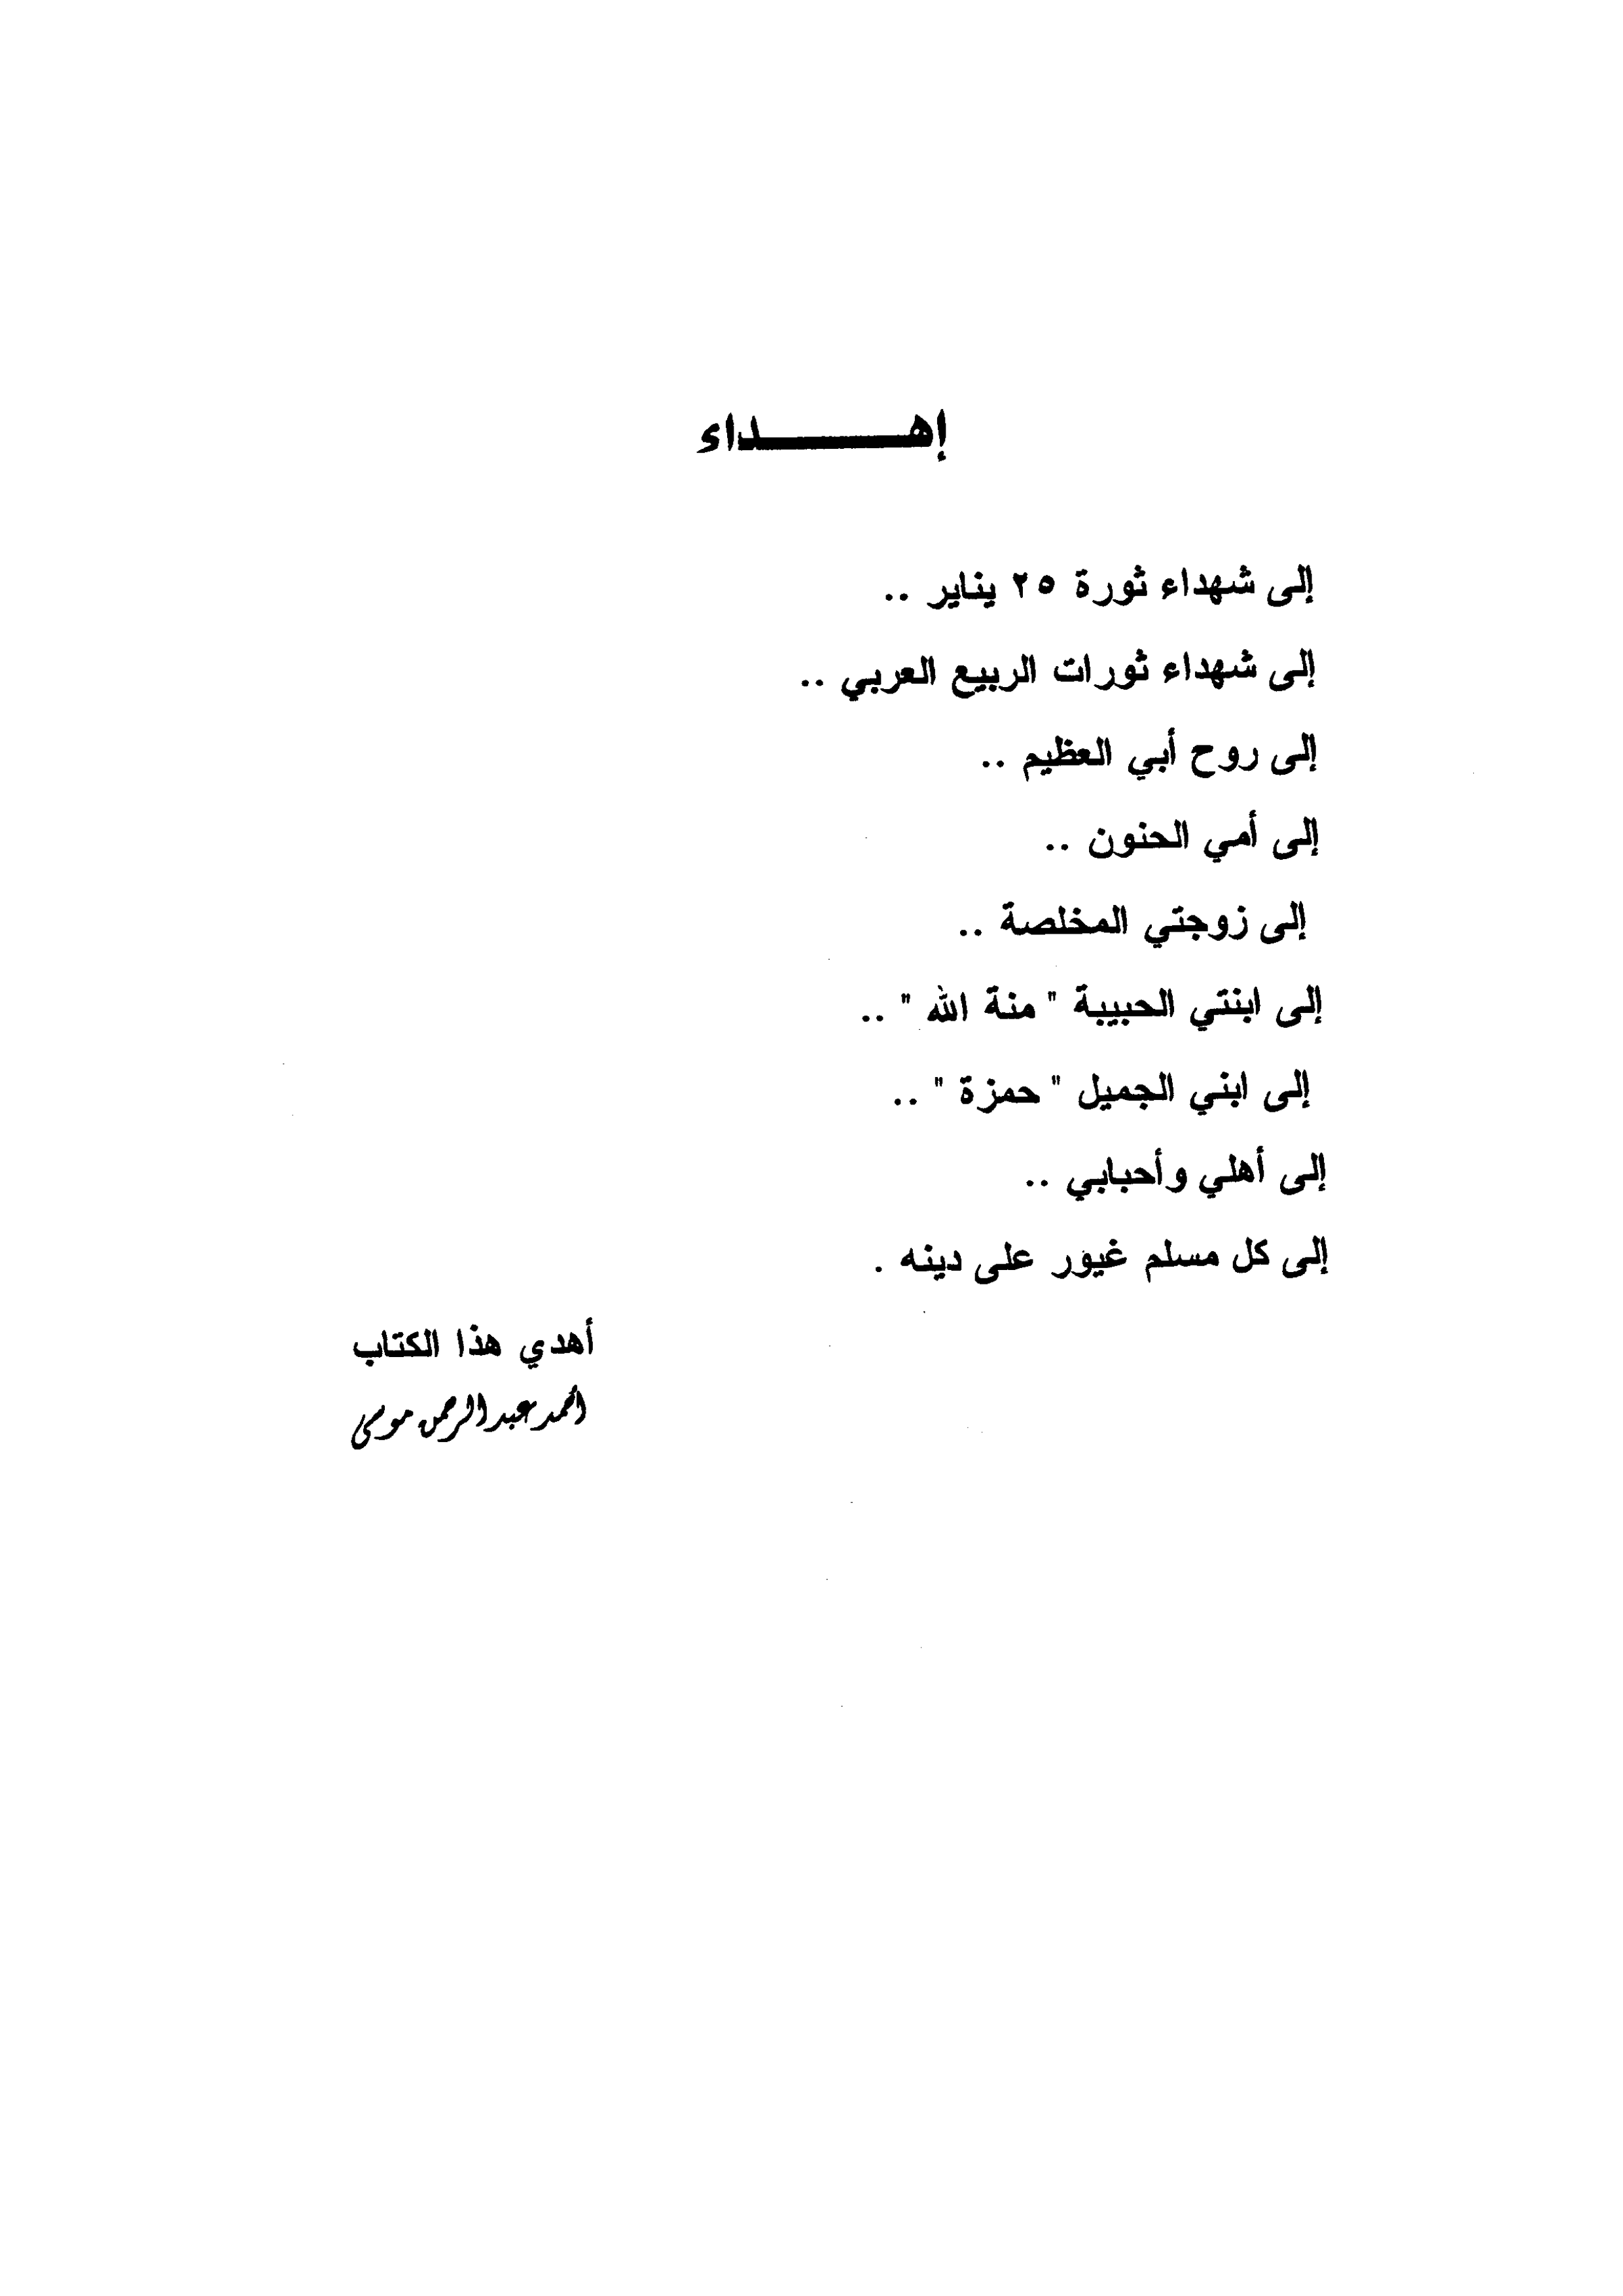 إهـــــــداء
إلى شهداء ثورة ٢٥ يناير ..
إلى شهداء ثورات الربيع العربي ..
إلى روح أبي العظيم ..
إلى أمي الحنون ..
إلى زوجتي المخلصة ..
إلى ابنتي الحبيبة " منة الله " ..
إلى ابني الجميل " حمزة " ..
إلى أهلي وأحبابي ..
إلى كل مسلم غيور على دينه .
أهدي هذا الكتاب
أحمد عبد الرحمن موسى